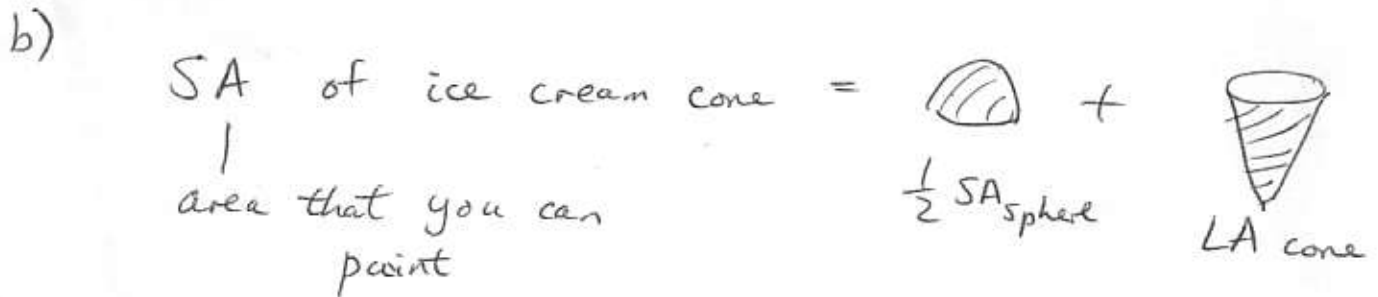 b)
SA of ice cream cone = +
area that you can
paint
1/2 SA sphere
LA cone